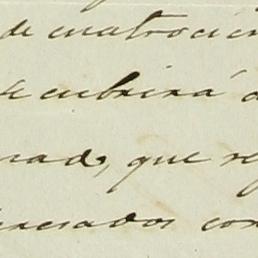 de cuatrocien
se cubrirá a
nad, que se
eresados con